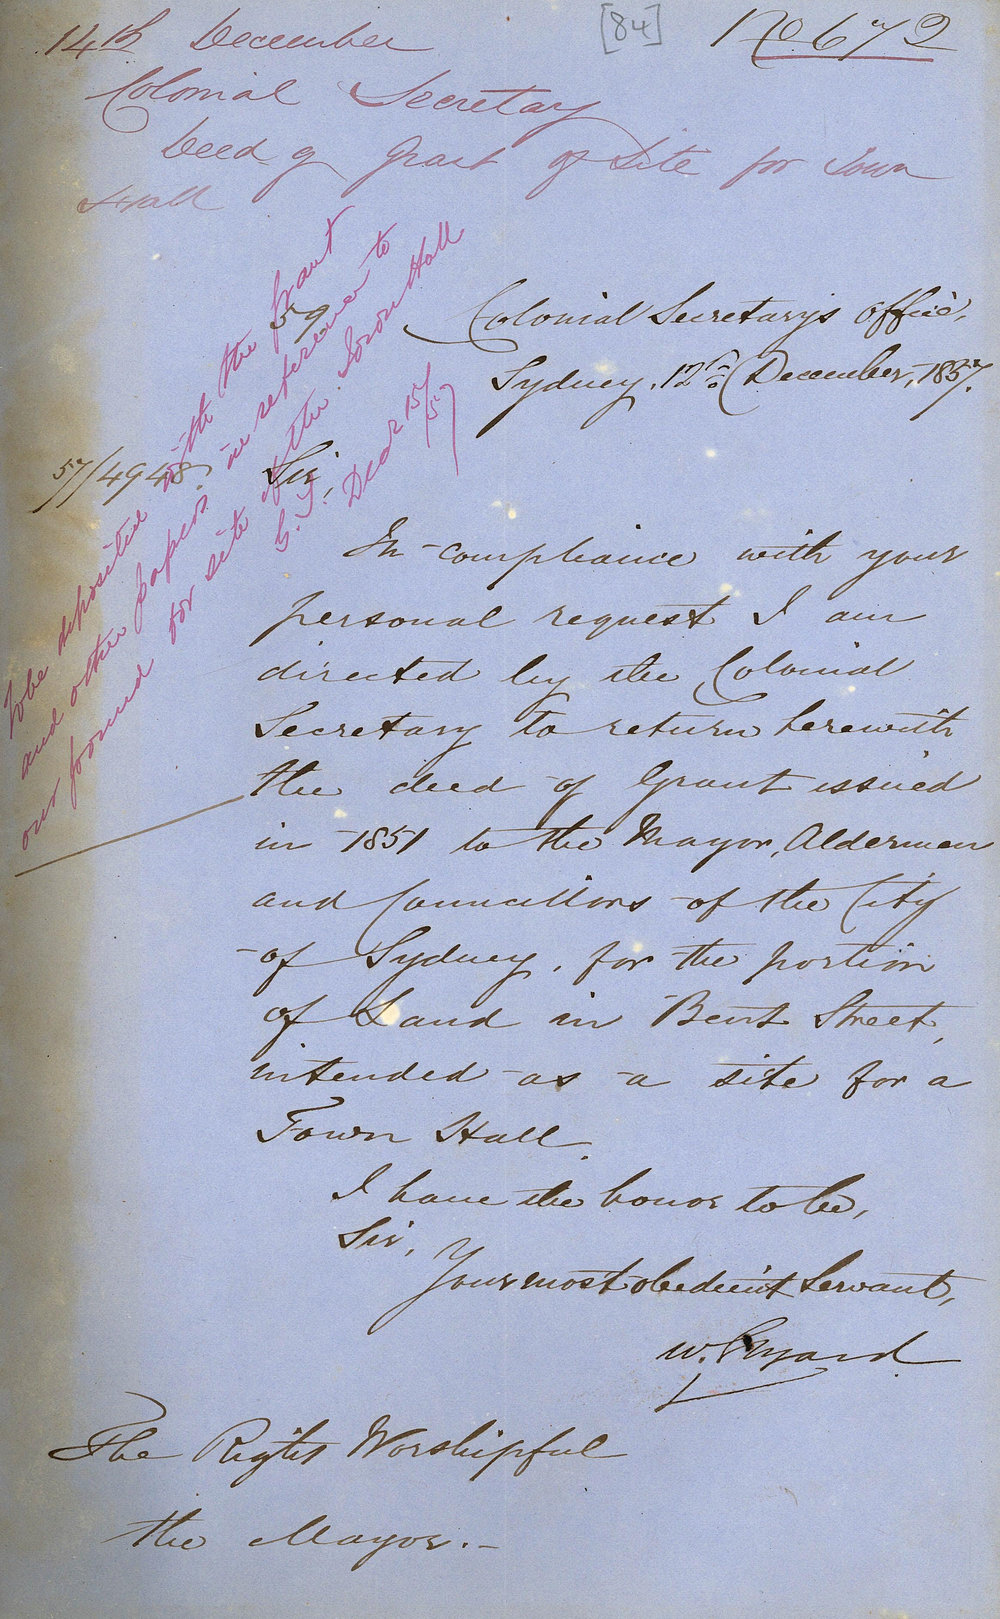 14th December
[84]
No 672
Colonial Secretary
Deed of Grant of Site for Town
Hall
To be deposited with the Grant
and other papers in reference to
our for site of the Town Hall
Decr 15/57
59
Colonial Secretary's Office,
Sydney, 12th December, 1857.
57/4948
Sir,
In compliance with your
personal request I am
directed by the Colonial
Secretary to return herewith
the deed of Grant issued
in 1851 to the Mayor, Aldermen
and Councillors of the City
of Sydney, for the portion
of Land in Bent Street,
intended as a site for a
Town Hall.
I have the honor to be,
Sir,
Your most obedient Servant,
W. Elyard
The Right Worshipful
the Mayor.-